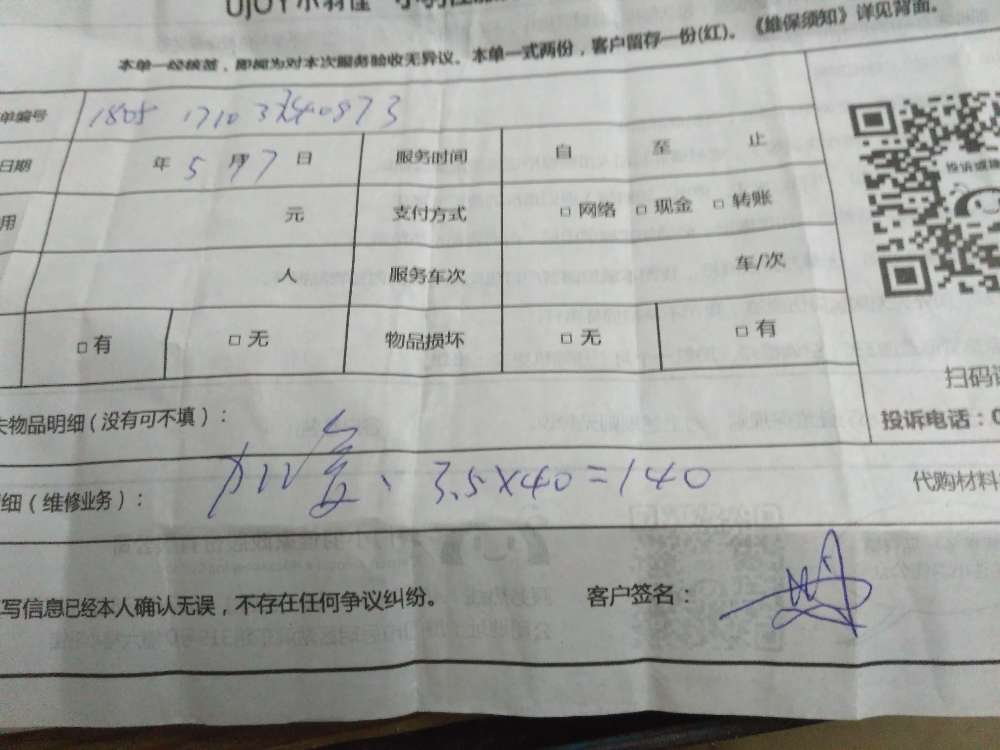 本单一经核签，即视为对本次服务验收无异议。本单一式两份，客户留存一份(红)。《维保须知》详见背面。
单编号 1805
日期 年 5 月 17 日 服务时间 自 至 止
用 元 支付方式 □ 网络 □ 现金 □ 转账
人 服务车次 车/次
□ 有 □ 无 物品损坏 □ 无 □ 有
扫码
失物品明细（没有可不填）：
投诉电话：0
3.5×40=140
细（维修业务）：
代购材料
写信息已经本人确认无误，不存在任何争议纠纷。 客户签名：